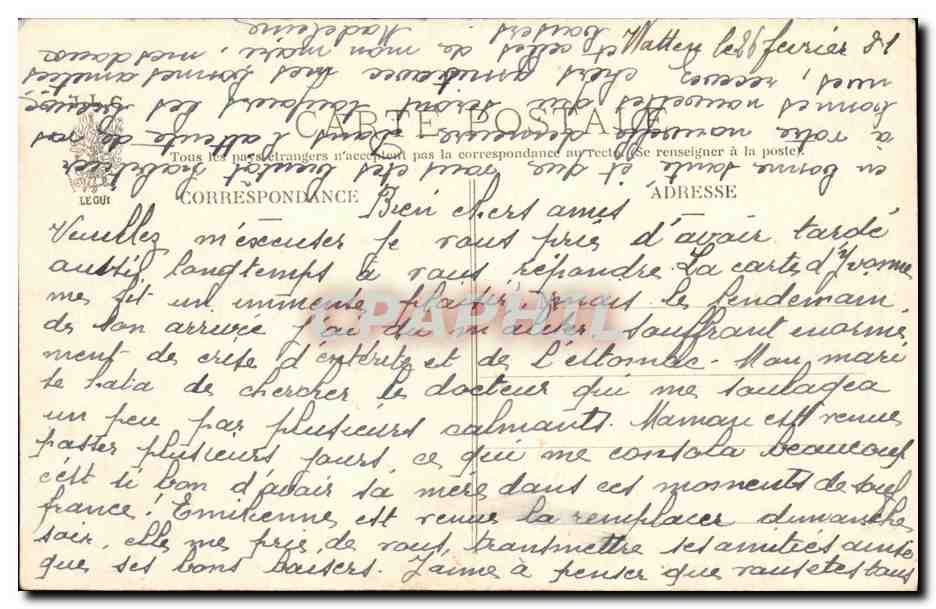 Watten le 26 février 21
CARTE POSTALE
Tous les pays étrangers n'acceptent pas la correspondance au recto (Se renseigner à la poste).
CORRESPONDANCE
ADRESSE
LE GUI
CPAPHIL
Bien chers amis
Veuillez m'excuser je vous prie d'avoir tardé
aussi longtemps à vous répondre. La carte d'Yvonne
me fit un immense plaisir, mais le lendemain
de son arrivée j'ai dû m'aliter, souffrant enormé
ment de crise d'entérite et de l'estomac. Mon mari
se hata de chercher le docteur qui me soulagea
un peu par plusieurs calmants. Maman est venue
passer plusieurs jours, ce qui me consola beaucoup
c'est si bon d'avoir sa mère dans ces moments de souf
france! Emilienne est venue la remplacer dimanche
soir, elle me prie de vous transmettre ses amitiés ainsi
que ses bons baisers. J'aime à penser que vous êtes tous
en bonne santé et que vous êtes bientot
à votre nouvelle demeure. Dans l'attente de vos
bonnes nouvelles qui seront toujours les
nues, recevez chers amis avec mes bonnes amitiés
et celles de mon mari, mes doux
baisers. Madeleine